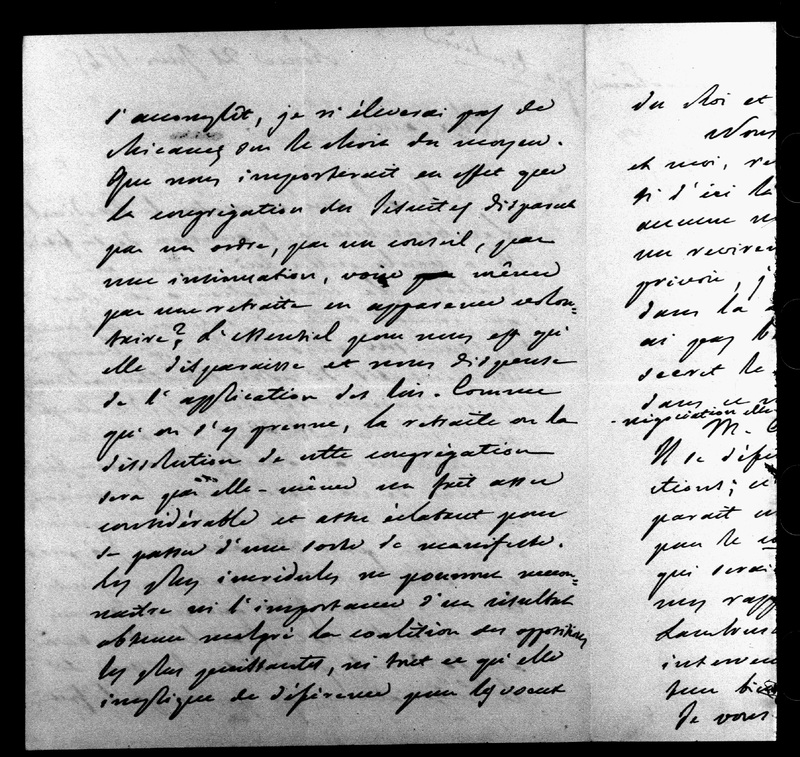 s'accomplît, je n'éleverai pas de
chicanes sur le choix du moyen.
Que nous importerait en effet que
la congrégation des Jésuites disparut
par un ordre, par un conseil, par
une insinuation, voire même
par une retraite en apparence volon=
taire? L'essentiel pour nous est qu'
elle disparaisse et nous dispense
de l'application des lois. Comme
qu'on s'y prenne, la retraite ou la
dissolution de cette congrégation
sera par elle-même un fait assez
considérable et assez éclatant pour
se passer d'une sorte de manifeste.
Les plus incrédules ne pourront mécon=
naître ni l'importance d'un résultat
obtenu malgré la coalition des oppositions
les plus puissantes, ni tout ce qu'elle
implique de déférence pour les voeux
du Roi et
Nous
et moi, re
si d'ici là
aucune
un revirem
prévoir, j'
dans la
ai pas
secret le
dans ce
négociation elle
M.
Il se
ctions;
parait
par le
qui serait
mes rapp
Lambrusc
interven
pour bien
de vous